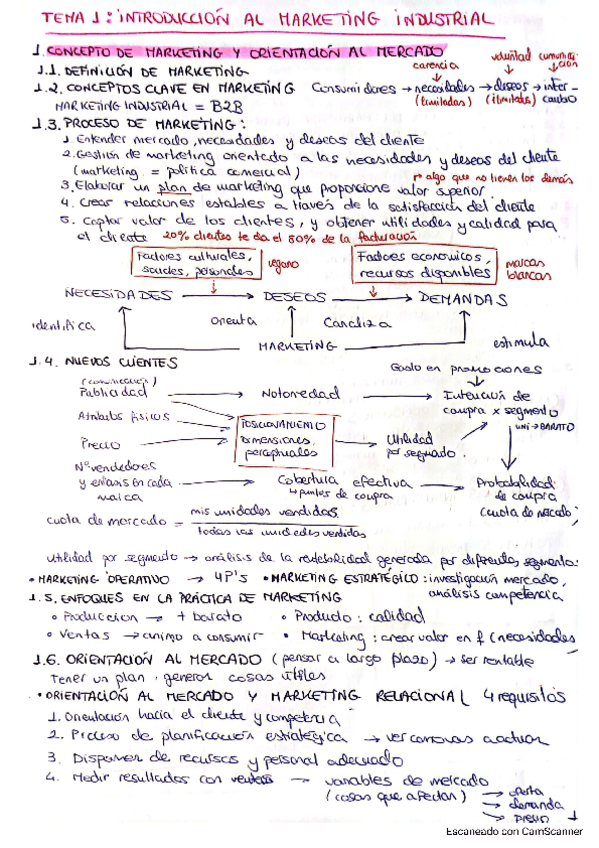 TEMA 1: INTRODUCCIÓN AL MARKETING INDUSTRIAL
1. CONCEPTO DE MARKETING Y ORIENTACIÓN AL MERCADO
1.1. DEFINICIÓN DE MARKETING
carencia voluntad comunicación
1.2. CONCEPTOS CLAVE EN MARKETING Consumidores → necesidades → deseos → inter-
MARKETING INDUSTRIAL = B2B (limitadas) (ilimitados) cambio
1.3. PROCESO DE MARKETING:
1. Entender mercado, necesidades y deseos del cliente
2. Gestión de marketing orientado a las necesidades y deseos del cliente
(marketing = política comercial) algo que no tienen los demás
3. Elaborar un plan de marketing que proporcione valor superior
4. Crear relaciones estables a través de la satisfacción del cliente
5. Captar valor de los clientes, y obtener utilidades y calidad para
el cliente 20% clientes te da el 80% de la facturación
Factores culturales, sociales, personales
vegano
Factores económicos, recursos disponibles
marcas blancas
NECESIDADES → DESEOS → DEMANDAS
identifica orienta Canaliza estimula
MARKETING
1.4. NUEVOS CLIENTES
Gasto en promociones
(comunicación)
Publicidad → Notoriedad → Intención de compra x segmento
Atributos físicos
UNI → BARATO
Precio
POSICIONAMIENTO
Dimensiones perceptuales
Utilidad por segundo
Nº vendedores y énfasis en cada marca
Cobertura efectiva
puntos de compra
Probabilidad de compra
(cuota de mercado)
cuota de mercado = mis unidades vendidas
todas las unidades vendidas
utilidad por segmento → análisis de la rentabilidad generada por diferentes segmentos
• MARKETING OPERATIVO → 4P's • MARKETING ESTRATÉGICO: investigación mercado,
análisis competencia
1.5. ENFOQUES EN LA PRÁCTICA DE MARKETING
• Produccion → + barato • Producto: calidad
• Ventas → animo a consumir • Marketing: crear valor en f (necesidades)
1.6. ORIENTACIÓN AL MERCADO (pensar a largo plazo) → ser rentable
tener un plan, generar cosas útiles
• ORIENTACIÓN AL MERCADO Y MARKETING RELACIONAL 4 requisitos
1. Orientación hacia el cliente y competencia
2. Proceso de planificación estratégica → ver como vas a actuar
3. Disponer de recursos y personal adecuado
4. Medir resultados con ventas → variables de mercado
(cosas que afectan) → oferta
→ demanda
→ precio
1
Escaneado con CamScanner